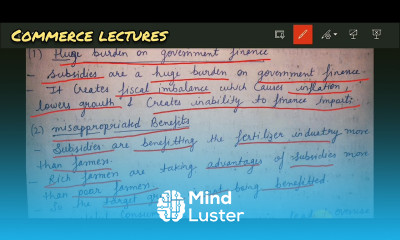 COMMERCE LECTURES
(1) Huge burden on government finance
- Subsidies are a huge burden on government finance.
- It creates fiscal imbalance which causes inflation,
lowers growth & creates inability to finance import.
(2) misappropriated Benefits
- Subsidies are benefitting the fertilizer industry more
than farmers.
- Rich farmers are taking advantages of subsidies more
than poor farmers.
the target being benefitted
Mind
Luster